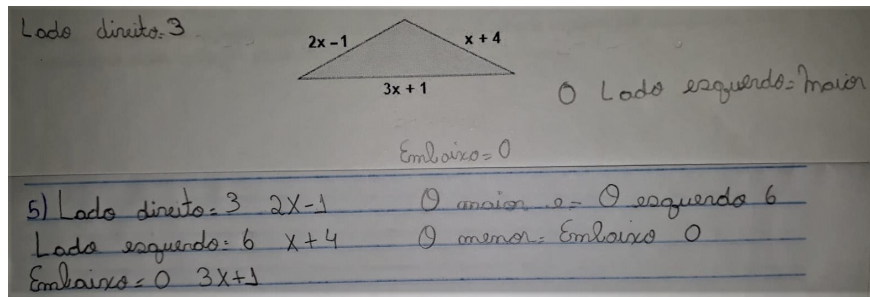 Lado direito=3
2x – 1
x + 4
3x + 1
O Lado esquerdo=maior
Embaixo=0
5) Lado direito=3 2X-1 O maior e= O esquerdo 6
Lado esquerdo=6 X+4 O menor= Embaixo 0
Embaixo=0 3X+1